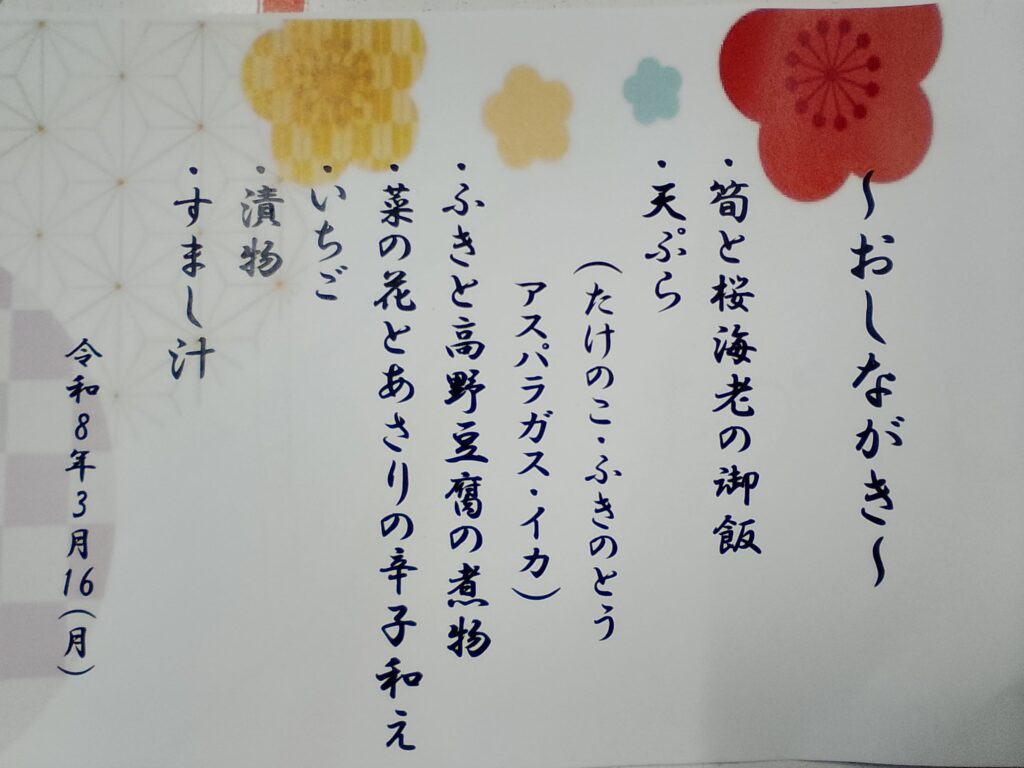 ～おしながき～
・筍と桜海老の御飯
・天ぷら
（たけのこ・ふきのとう
アスパラガス・イカ）
・ふきと高野豆腐の煮物
・菜の花とあさりの辛子和え
・いちご
・漬物
・すまし汁
令和8年3月16（月）